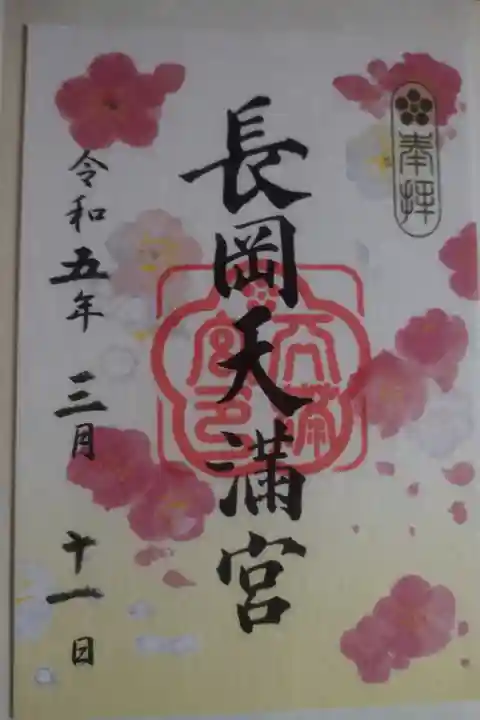 奉拝
長岡天満宮
令和五年 三月 十一日